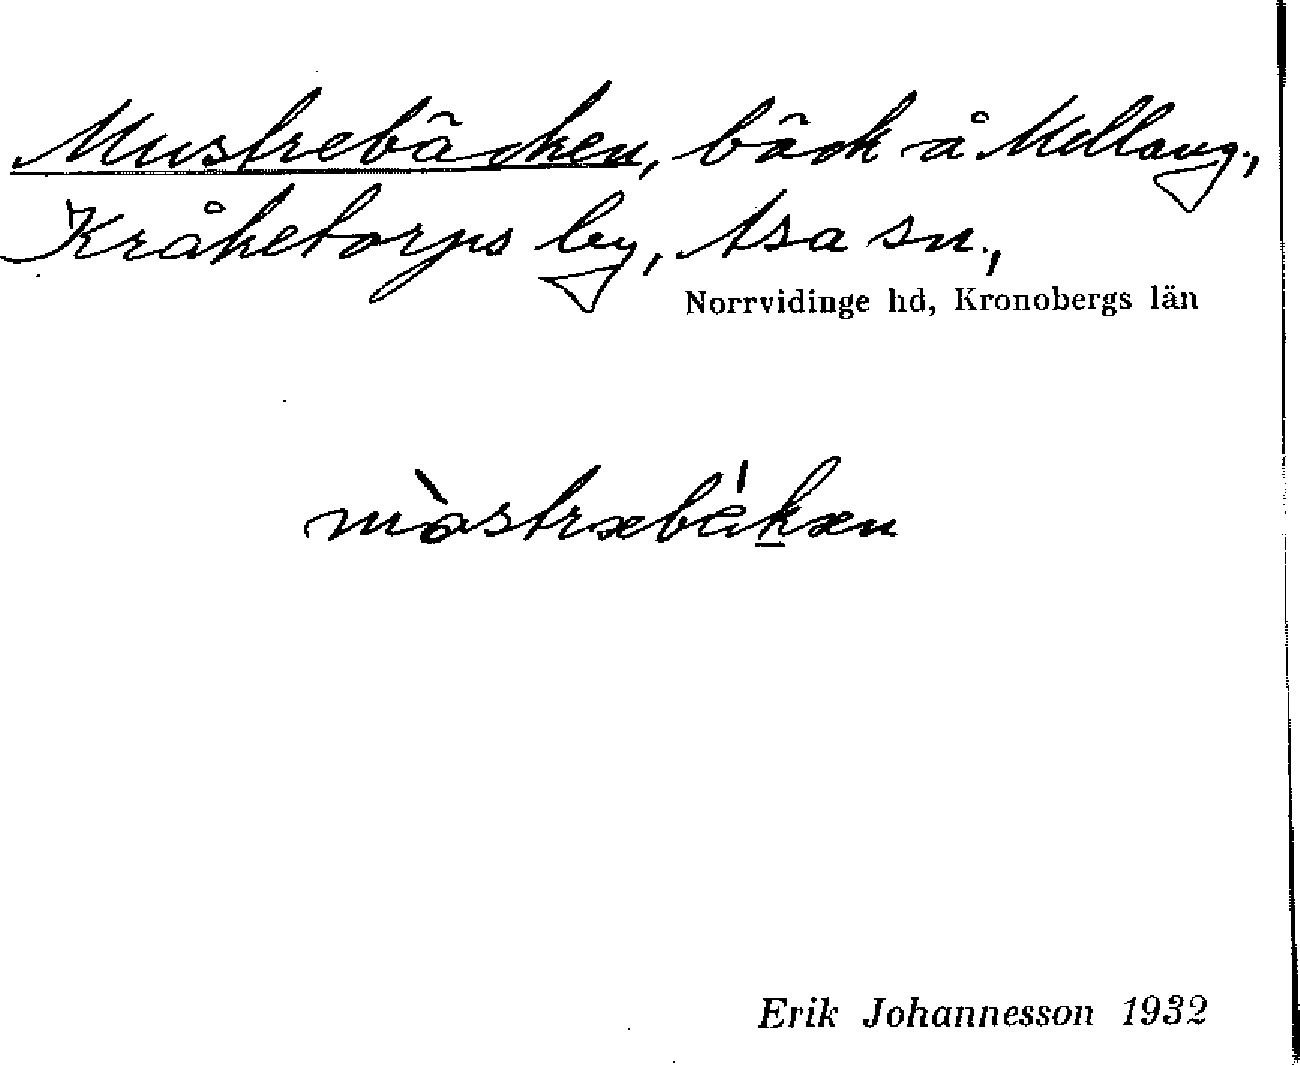 Mustrebäcken, bäck å Mellang.,
Kråketorps by, Asa sn.,
Norrvidinge hd, Kronobergs län
mòstrəbákən
Erik Johannesson 1932